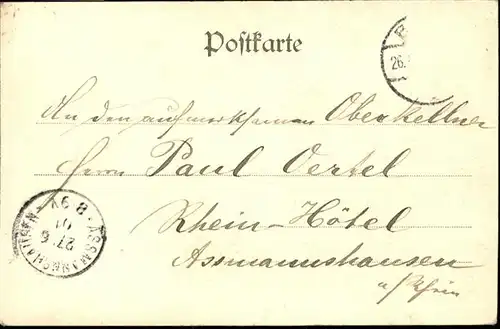 Postkarte
26.
An den aufmerksamen Oberkellner
Herrn Paul Oertel
Rhein-Hôtel
Assmannshausen
a/Rhein
ASSMANNSHAUSEN
27. 6
01
8-9V